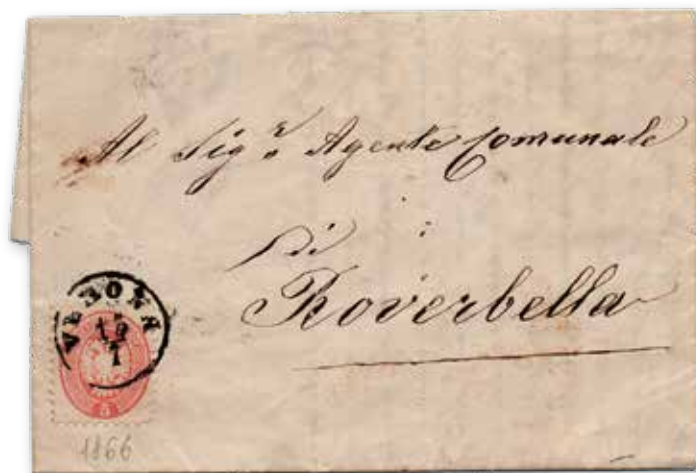 Al Sigr Agente Comunale
di
Roverbella
VERONA
19
1
5
1866